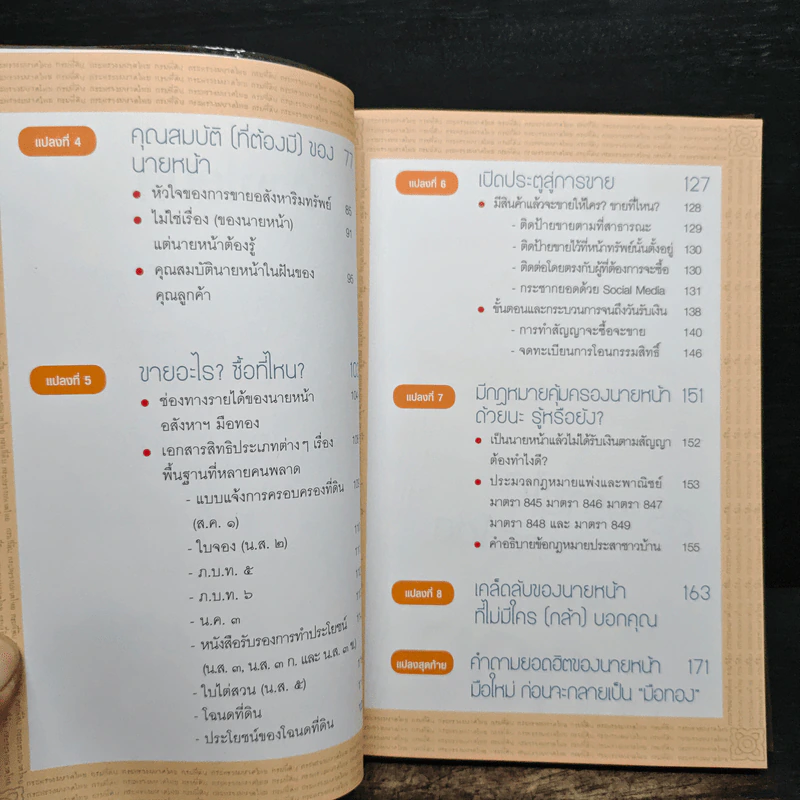 แปลงที่ 4
คุณสมบัติ (ที่ต้องมี) ของ 77
นายหน้า
• หัวใจของการขายอสังหาริมทรัพย์ 85
• ไม่ใช่เรื่อง (ของนายหน้า) 91
แต่นายหน้าต้องรู้
• คุณสมบัตินายหน้าในฝันของ 95
คุณลูกค้า
แปลงที่ 5
ขายอะไร? ซื้อที่ไหน?
• ช่องทางรายได้ของนายหน้า 104
อสังหาฯ มือทอง
• เอกสารสิทธิประเภทต่างๆ เรื่อง
พื้นฐานที่หลายคนพลาด
- แบบแจ้งการครอบครองที่ดิน
(ส.ค. ๑)
- ใบจอง (น.ส. ๒)
- ภ.บ.ท. ๕
- ภ.บ.ท. ๖
- น.ค. ๓
- หนังสือรับรองการทำประโยชน์
(น.ส. ๓, น.ส. ๓ ก. และ น.ส. ๓ ข)
- ใบไต่สวน (น.ส. ๕)
- โฉนดที่ดิน
- ประโยชน์ของโฉนดที่ดิน
แปลงที่ 6
เปิดประตูสู่การขาย 127
• มีสินค้าแล้วจะขายให้ใคร? ขายที่ไหน? 128
- ติดป้ายขายตามที่สาธารณะ 129
- ติดป้ายขายไว้ที่หน้าทรัพย์นั้นตั้งอยู่ 130
- ติดต่อโดยตรงกับผู้ที่ต้องการจะซื้อ 130
- กระชากยอดด้วย Social Media 131
• ขั้นตอนและกระบวนการจนถึงวันรับเงิน 138
- การทำสัญญาจะซื้อจะขาย 140
- จดทะเบียนการโอนกรรมสิทธิ์ 146
แปลงที่ 7
มีกฎหมายคุ้มครองนายหน้า 151
ด้วยนะ รู้หรือยัง?
• เป็นนายหน้าแล้วไม่ได้รับเงินตามสัญญา 152
ต้องทำไงดี?
• ประมวลกฎหมายแพ่งและพาณิชย์ 153
มาตรา 845 มาตรา 846 มาตรา 847
มาตรา 848 และ มาตรา 849
• คำอธิบายข้อกฎหมายประสาชาวบ้าน 155
แปลงที่ 8
เคล็ดลับของนายหน้า 163
ที่ไม่มีใคร (กล้า) บอกคุณ
แปลงสุดท้าย
คำถามยอดฮิตของนายหน้า 171
มือใหม่ ก่อนจะกลายเป็น "มือทอง"